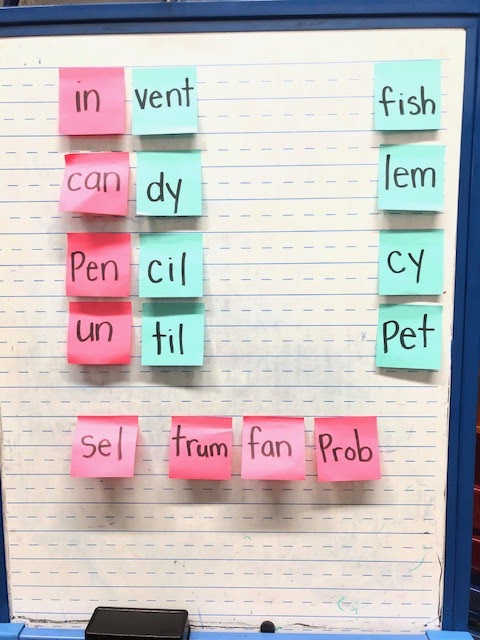 in vent fish
can dy lem
Pen cil cy
un til Pet
sel trum fan Prob